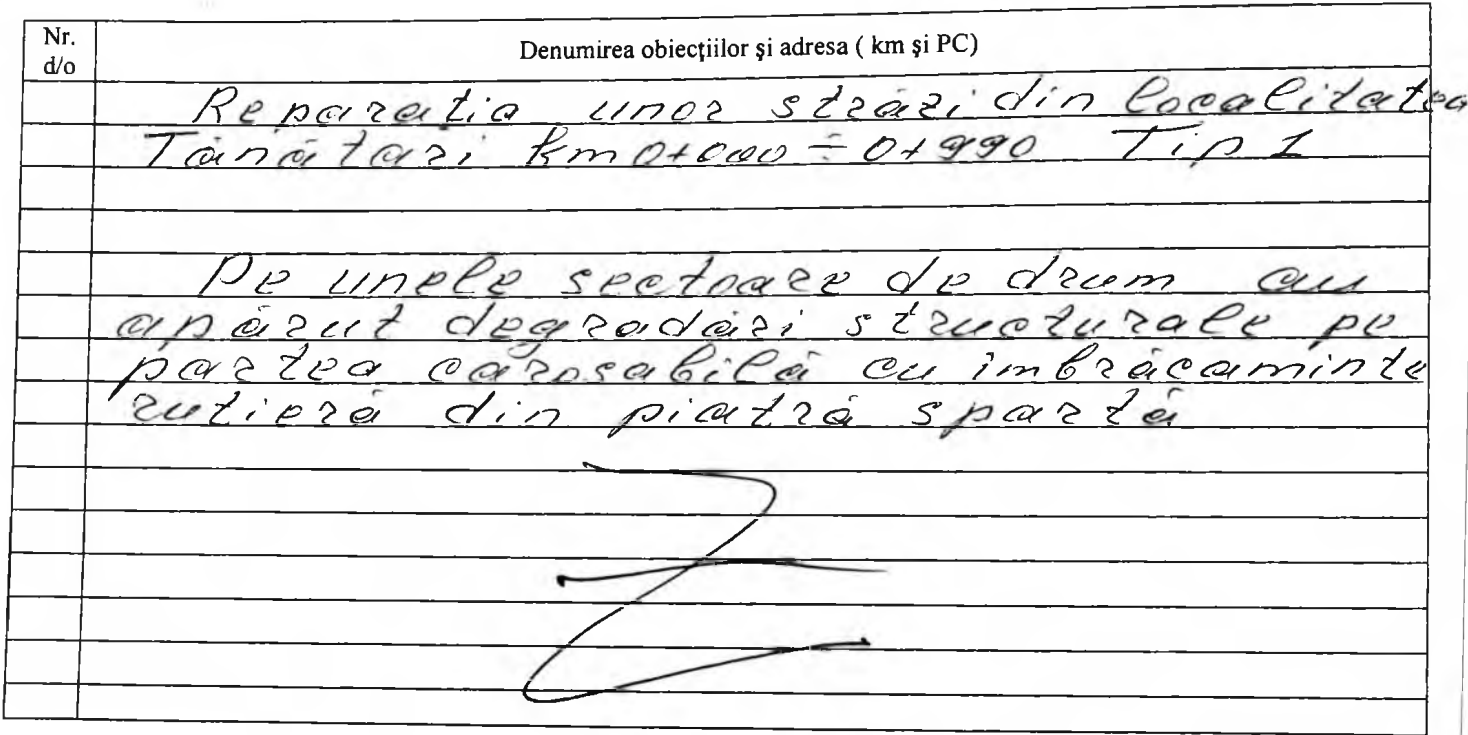 Nr. d/o Denumirea obiecțiilor și adresa ( km și PC)
Reparatia unor străzi din localitatea
Tănătari km 0+000 ÷ 0+990 Tip 1
Pe unele sectoare de drum au
apărut degradări structurale pe
partea carosabilă cu imbrăcaminte
rutieră din piatră spartă